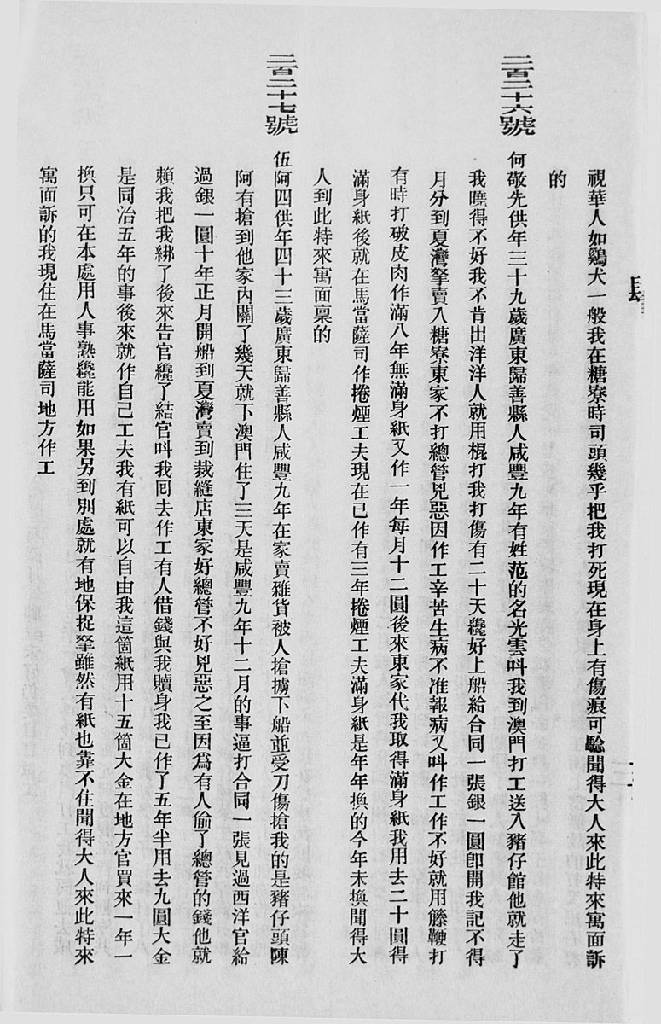 視華人如鷄犬一般我在糖寮時司頭幾乎把我打死現在身上有傷痕可驗聞得大人來此特來寓面訴
的
二百二十六號
何敬先供年三十九歲廣東歸善縣人咸豐九年有姓范的名光雲叫我到澳門打工送入豬仔館他就走了
我曉得不好我不肯出洋洋人就用棍打我打傷有二十天纔好上船給合同一張銀一圓卽開我記不得
月分到夏灣拏賣入糖寮東家不打總管兇惡因作工辛苦生病不准報病又叫作工作不好就用籐鞭打
有時打破皮肉作滿八年無滿身紙又作一年每月十二圓後來東家代我取得滿身紙我用去二十圓得
滿身紙後就在馬當薩司作捲煙工夫現在已作有三年捲煙工夫滿身紙是年年換的今年未換聞得大
人到此特來寓面稟的
二百二十七號
伍阿四供年四十三歲廣東歸善縣人咸豐九年在家賣雜貨被人搶擄下船並受刀傷搶我的是豬仔頭陳
阿有搶到他家內關了幾天就下澳門住了三天是咸豐九年十二月的事逼打合同一張見過西洋官給
過銀一圓十年正月開船到夏灣賣到裁縫店東家好總管不好兇惡之至因爲有人偷了總管的錢他就
賴我把我綁了後來告官纔了結官叫我回去作工有人借錢與我贖身我已作了五年半用去九圓大金
是同治五年的事後來就作自己工夫我有紙可以自由我這箇紙用十五箇大金在地方官買來一年一
換只可在本處用人事熟纔能用如果另到別處就有地保捉拏雖然有紙也靠不住聞得大人來此特來
寓面訴的我現住在馬當薩司地方作工